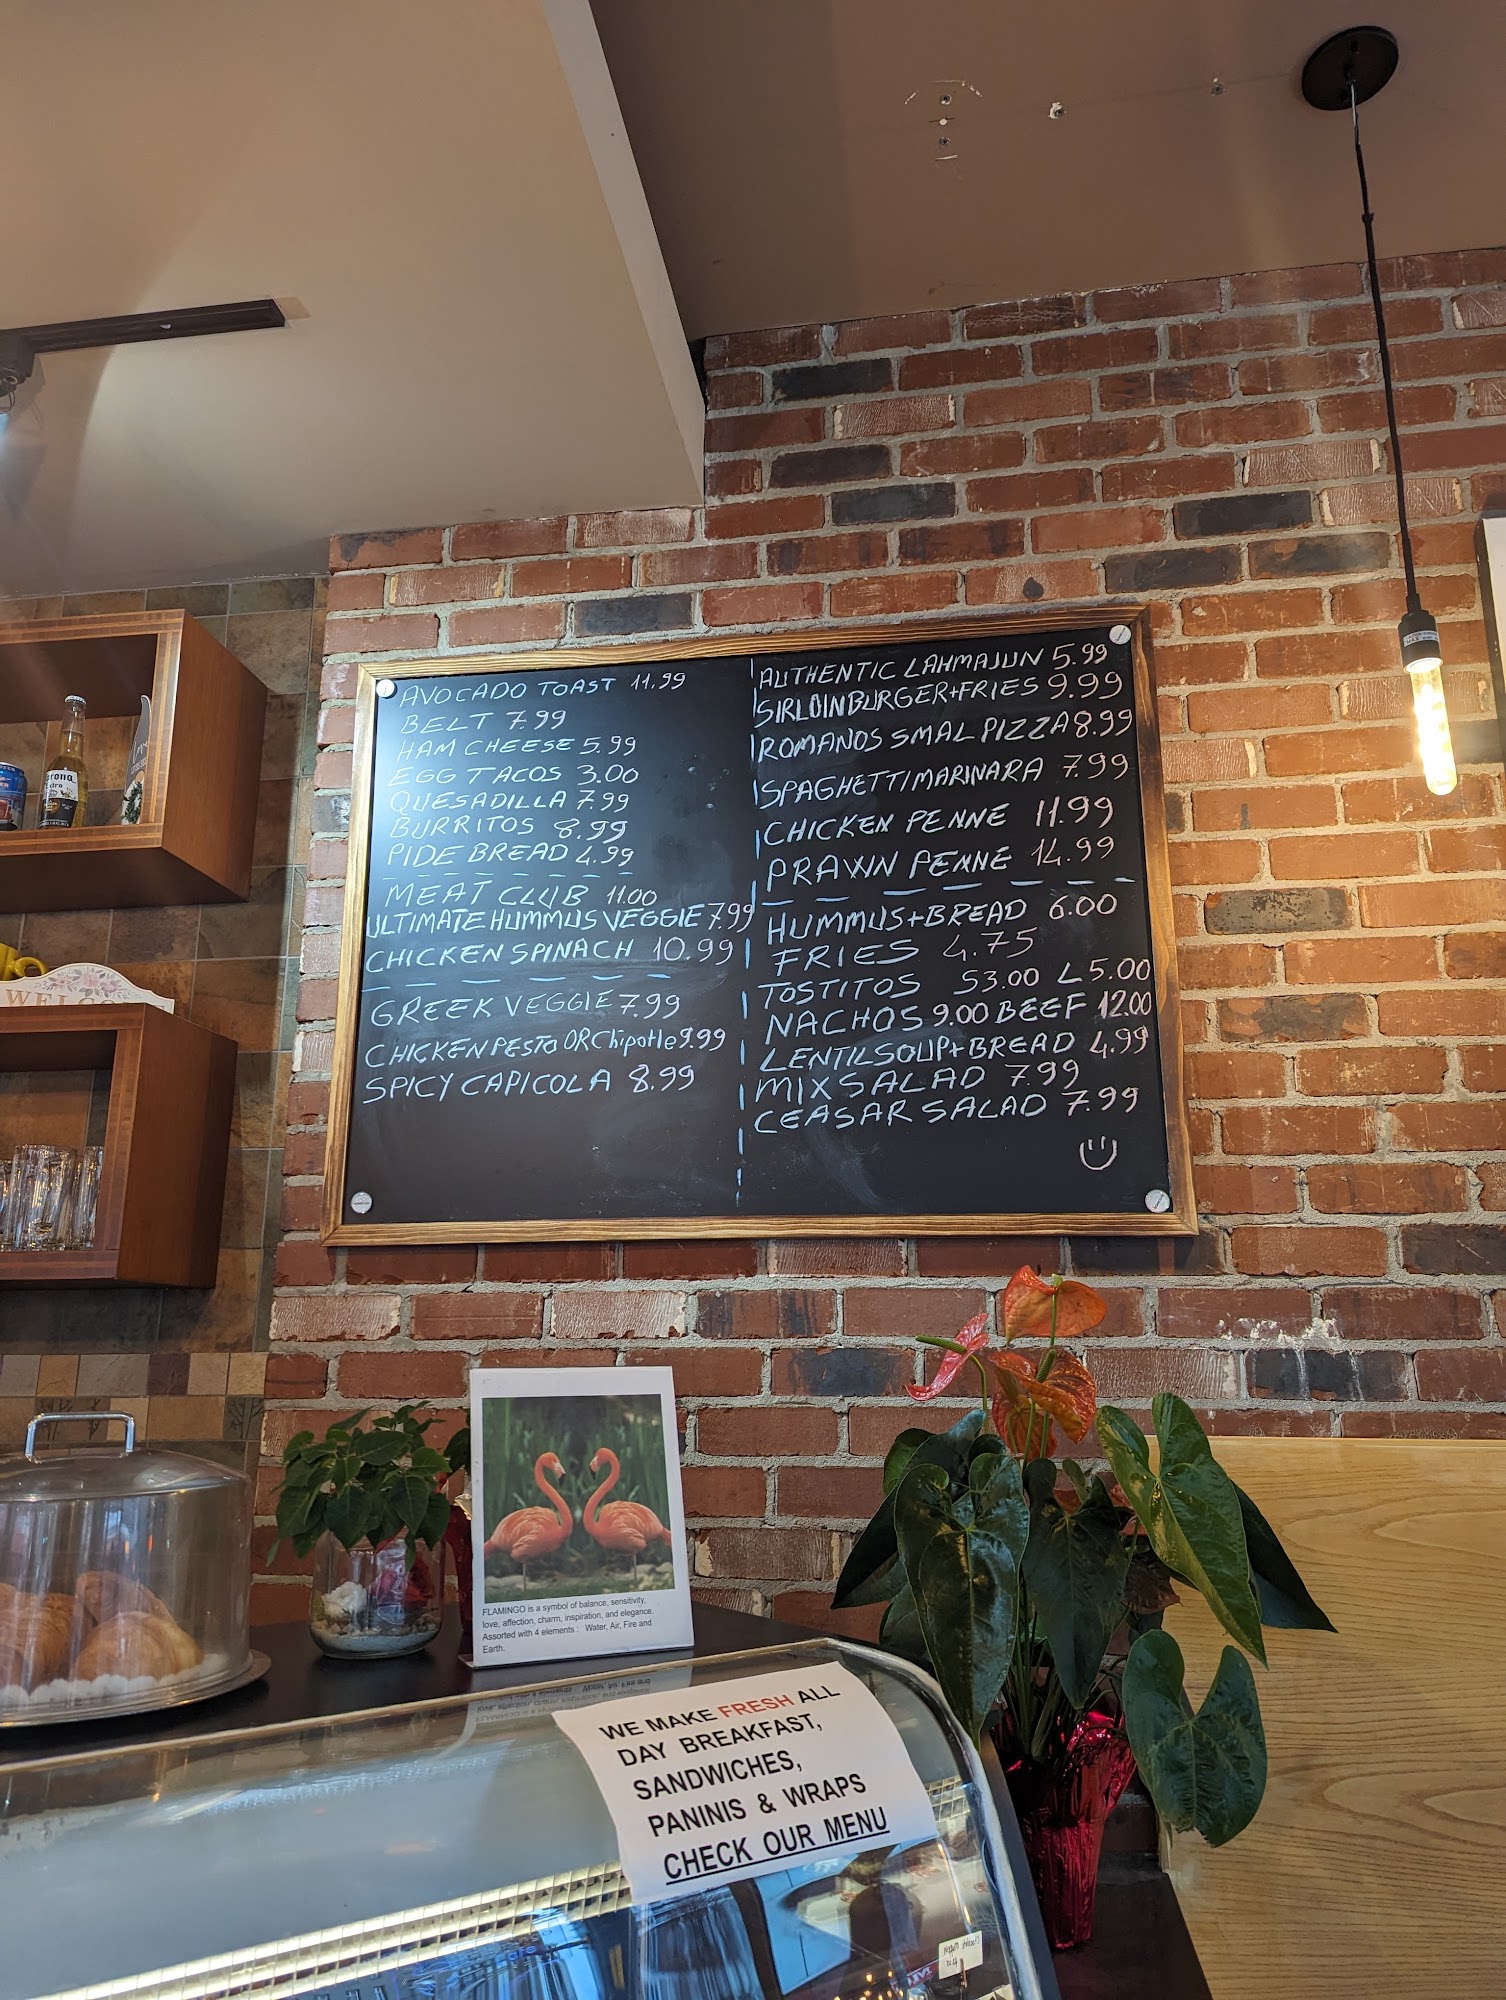 AVOCADO TOAST 11.99
BELT 7.99
HAM CHEESE 5.99
EGG TACOS 3.00
QUESADILLA 7.99
BURRITOS 8.99
PIDE BREAD 4.99
MEAT CLUB 11.00
ULTIMATE HUMMUS VEGGIE 7.99
CHICKEN SPINACH 10.99
GREEK VEGGIE 7.99
CHICKEN PESTO OR Chipotle 9.99
SPICY CAPICOLA 8.99
AUTHENTIC LAHMAJUN 5.99
SIRLOIN BURGER+FRIES 9.99
ROMANOS SMAL PIZZA 8.99
SPAGHETTI MARINARA 7.99
CHICKEN PENNE 11.99
PRAWN PENNE 14.99
HUMMUS+BREAD 6.00
FRIES 4.75
TOSTITOS S3.00 L5.00
NACHOS 9.00 BEEF 12.00
LENTILSOUP+BREAD 4.99
MIX SALAD 7.99
CEASAR SALAD 7.99
Corona
Extra
FLAMINGO is a symbol of balance, sensitivity,
love, affection, charm, inspiration, and elegance.
Assorted with 4 elements : Water, Air, Fire and
Earth.
WE MAKE FRESH ALL
DAY BREAKFAST,
SANDWICHES,
PANINIS & WRAPS
CHECK OUR MENU